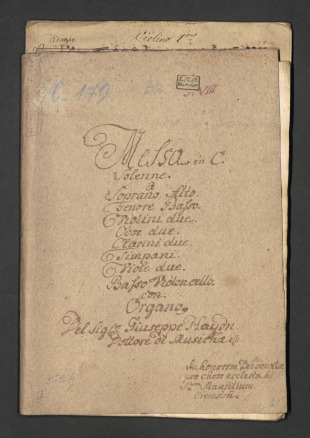 Adagio Violino 1mo
C. 179
VIII
Messa in C.
Solenne.
a
Soprano. Alto.
Tenore Basso.
Violini due.
Oboe due.
Clarini due.
Timpani.
Viole due.
Basso Violoncello.
con
Organo
Del Sigre Giuseppe Haydn
Dottore di Musicha
In honorem Dei
pro choro ecclesiae